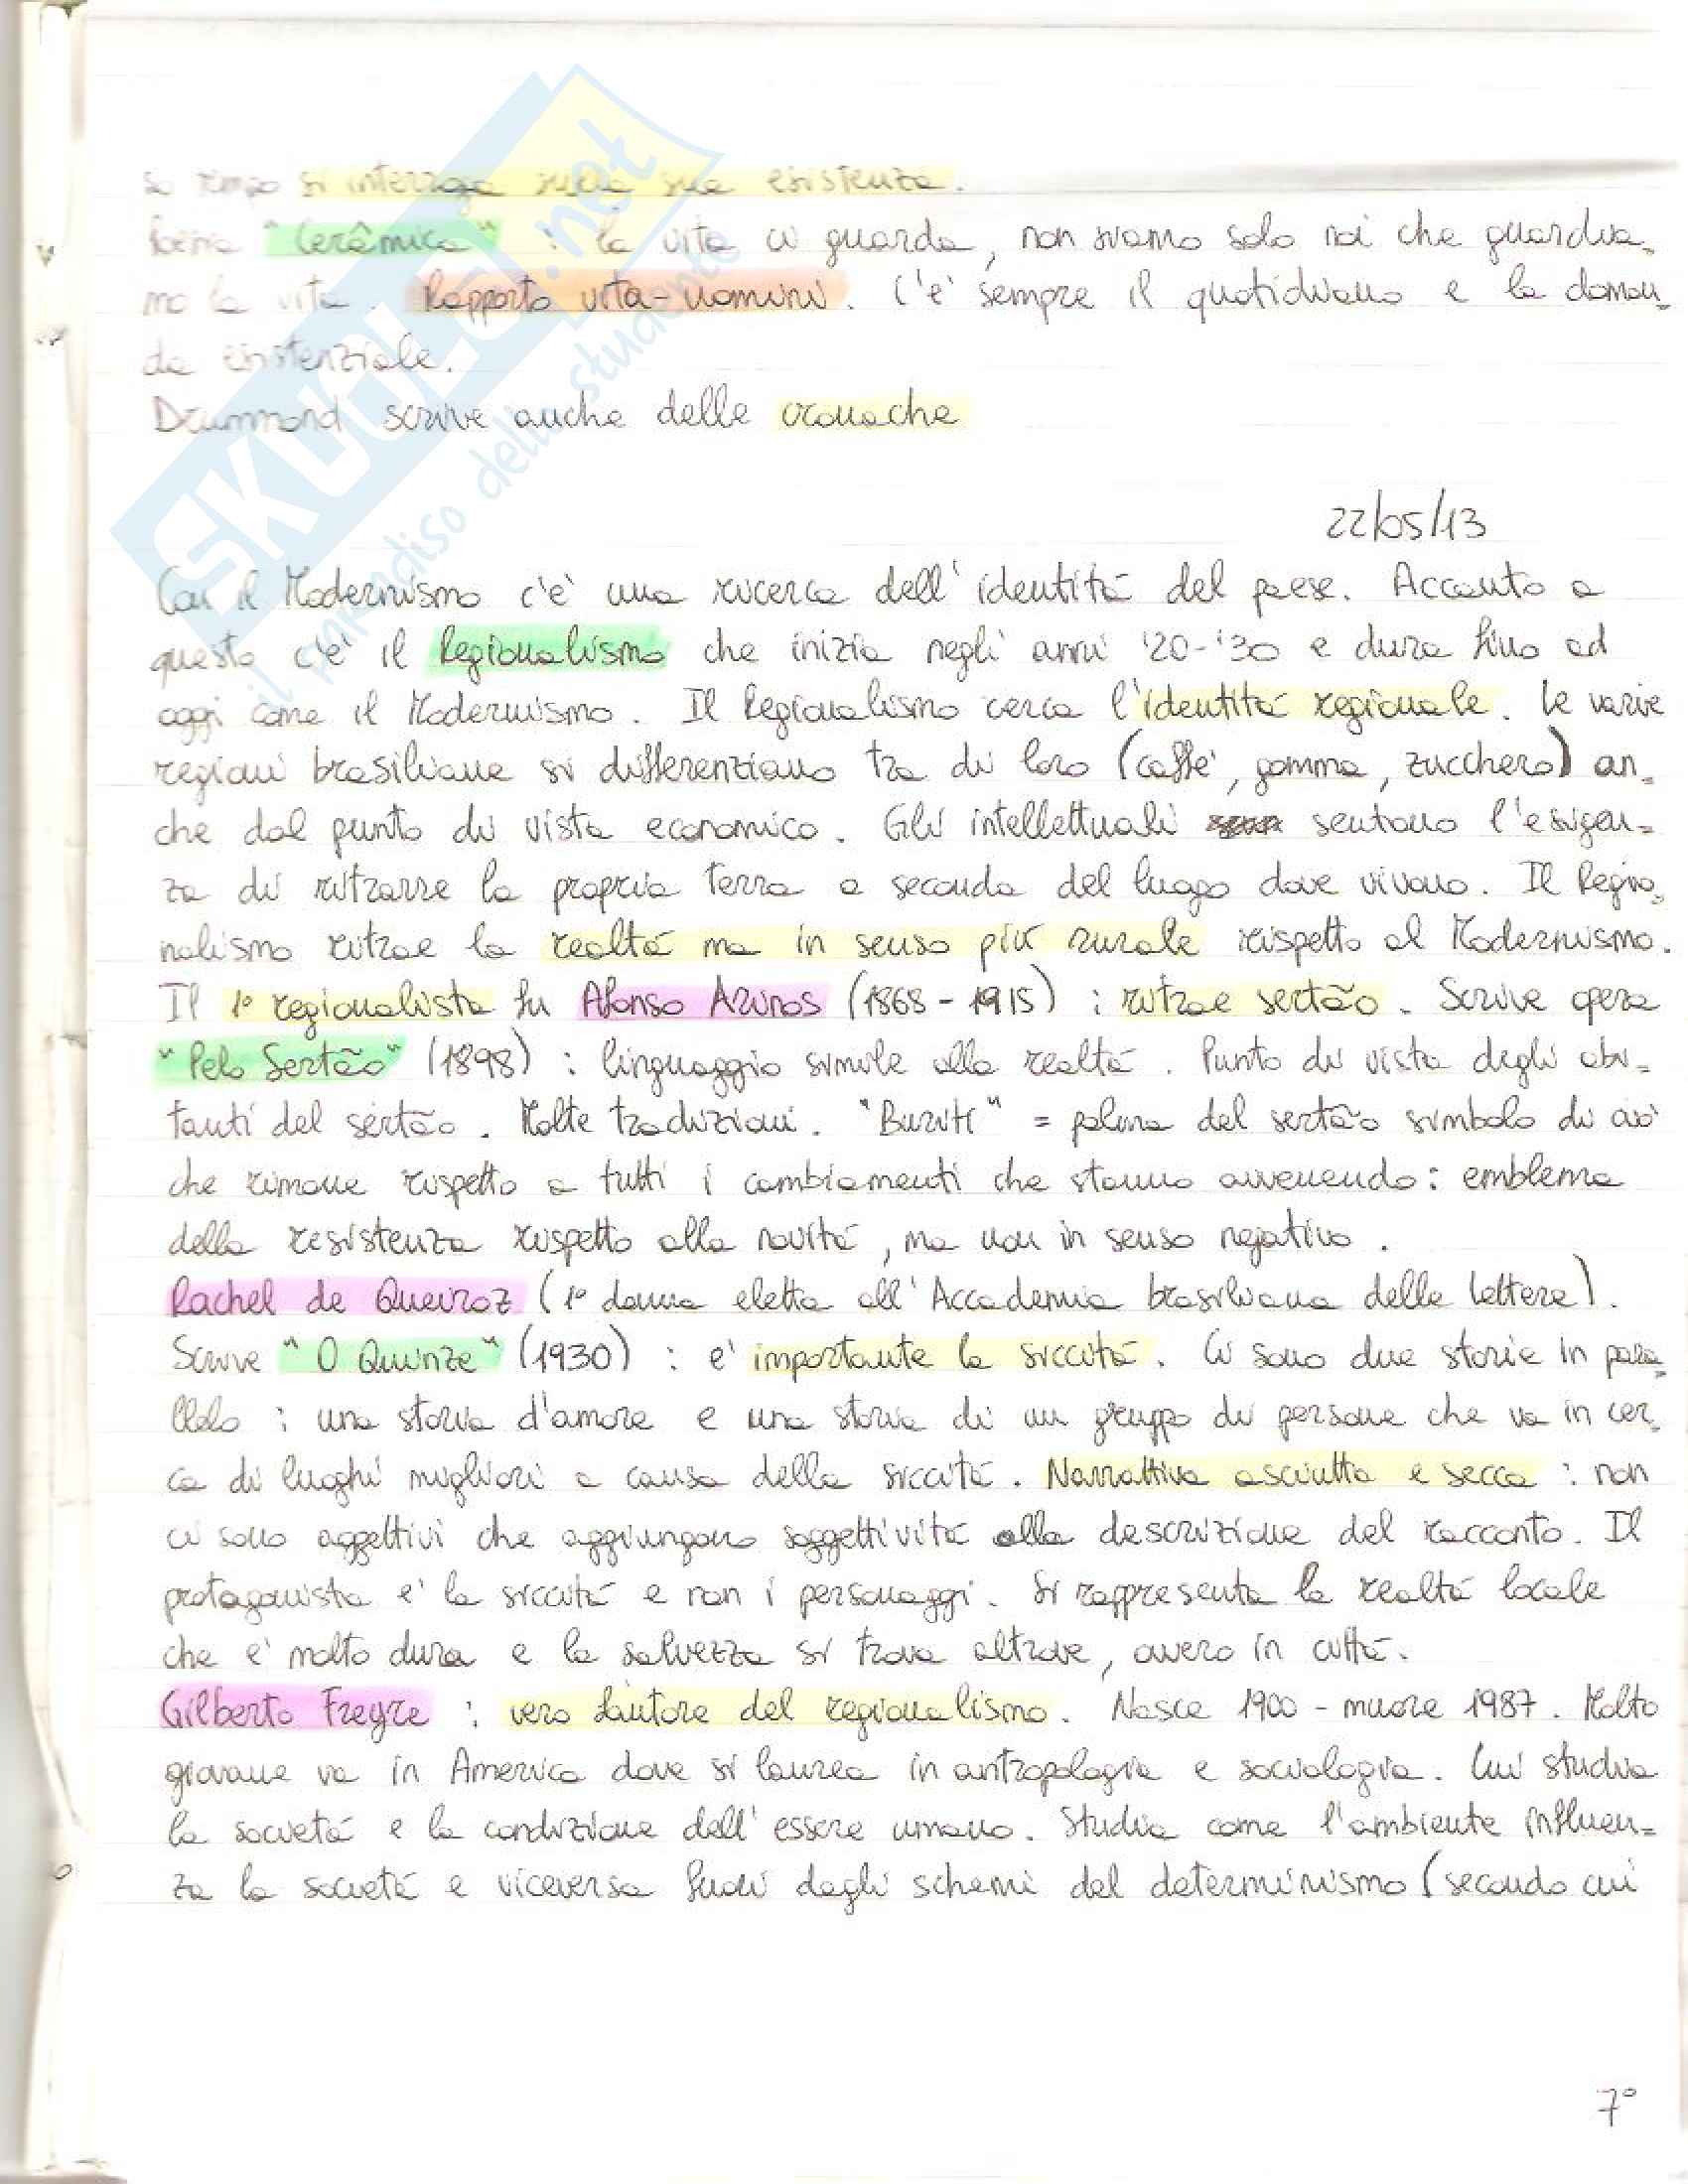 so tempo si interroga sulla sua esistenza.
Poesia "Cerâmica" : la vita ci guarda, non siamo solo noi che guardia-
mo la vita. Rapporto vita-uomini. C'è sempre il quotidiano e la doman-
da esistenziale.
Drummond scrive anche delle cronache
22/05/13
Con il Modernismo c'è una ricerca dell'identità del paese. Accanto a
questo c'è il Regionalismo che inizia negli anni '20-'30 e dura fino ad
oggi come il Modernismo. Il Regionalismo cerca l'identità regionale. Le varie
regioni brasiliane si differenziano tra di loro (caffè, gomma, zucchero) an-
che dal punto di vista economico. Gli intellettuali sentono l'esigen-
za di ritrarre la propria terra a seconda del luogo dove vivono. Il Regio-
nalismo ritrae la realtà ma in senso più rurale rispetto al Modernismo.
Il 1° regionalista fu Afonso Arinos (1868-1915) : ritrae sertão. Scrive opera
"Pelo Sertão" (1898) : linguaggio simile alla realtà. Punto di vista degli abi-
tanti del sertão. Molte tradizioni. "Buriti" = palma del sertão simbolo di ciò
che rimane rispetto a tutti i cambiamenti che stanno avvenendo: emblema
della resistenza rispetto alla novità, ma non in senso negativo.
Rachel de Queiroz (1° donna eletta all'Accademia brasiliana delle lettere).
Scrive "O Quinze" (1930) : e' importante la siccità. Ci sono due storie in para-
llelo : una storia d'amore e una storia di un gruppo di persone che va in cer-
ca di luoghi migliori a causa della siccità. Narrattiva asciutta e secca : non
ci sono aggettivi che aggiungono soggettività alla descrizione del racconto. Il
protagonista e' la siccità e non i personaggi. Si rappresenta la realtà locale
che e' molto dura e la salvezza si trova altrove, ovvero in città.
Gilberto Freyre : vero fautore del regionalismo. Nasce 1900 - muore 1987. Molto
giovane va in America dove si laurea in antropologia e sociologia. Lui studia
la società e la condizione dell'essere umano. Studia come l'ambiente influen-
za la società e viceversa fuori dagli schemi del determinismo (secondo cui
7°
SKUOLA.net
il paradiso dello studente